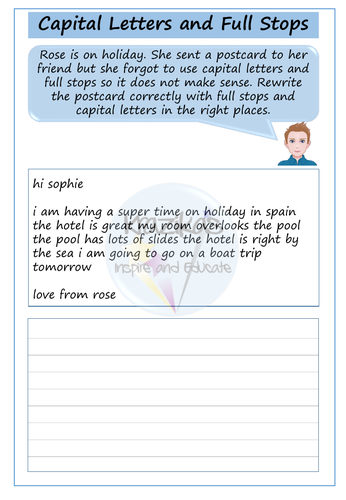 Capital Letters and Full Stops
Rose is on holiday. She sent a postcard to her
friend but she forgot to use capital letters and
full stops so it does not make sense. Rewrite
the postcard correctly with full stops and
capital letters in the right places.
hi sophie
i am having a super time on holiday in spain
the hotel is great my room overlooks the pool
the pool has lots of slides the hotel is right by
the sea i am going to go on a boat trip
tomorrow
love from rose
Inspire and Educate